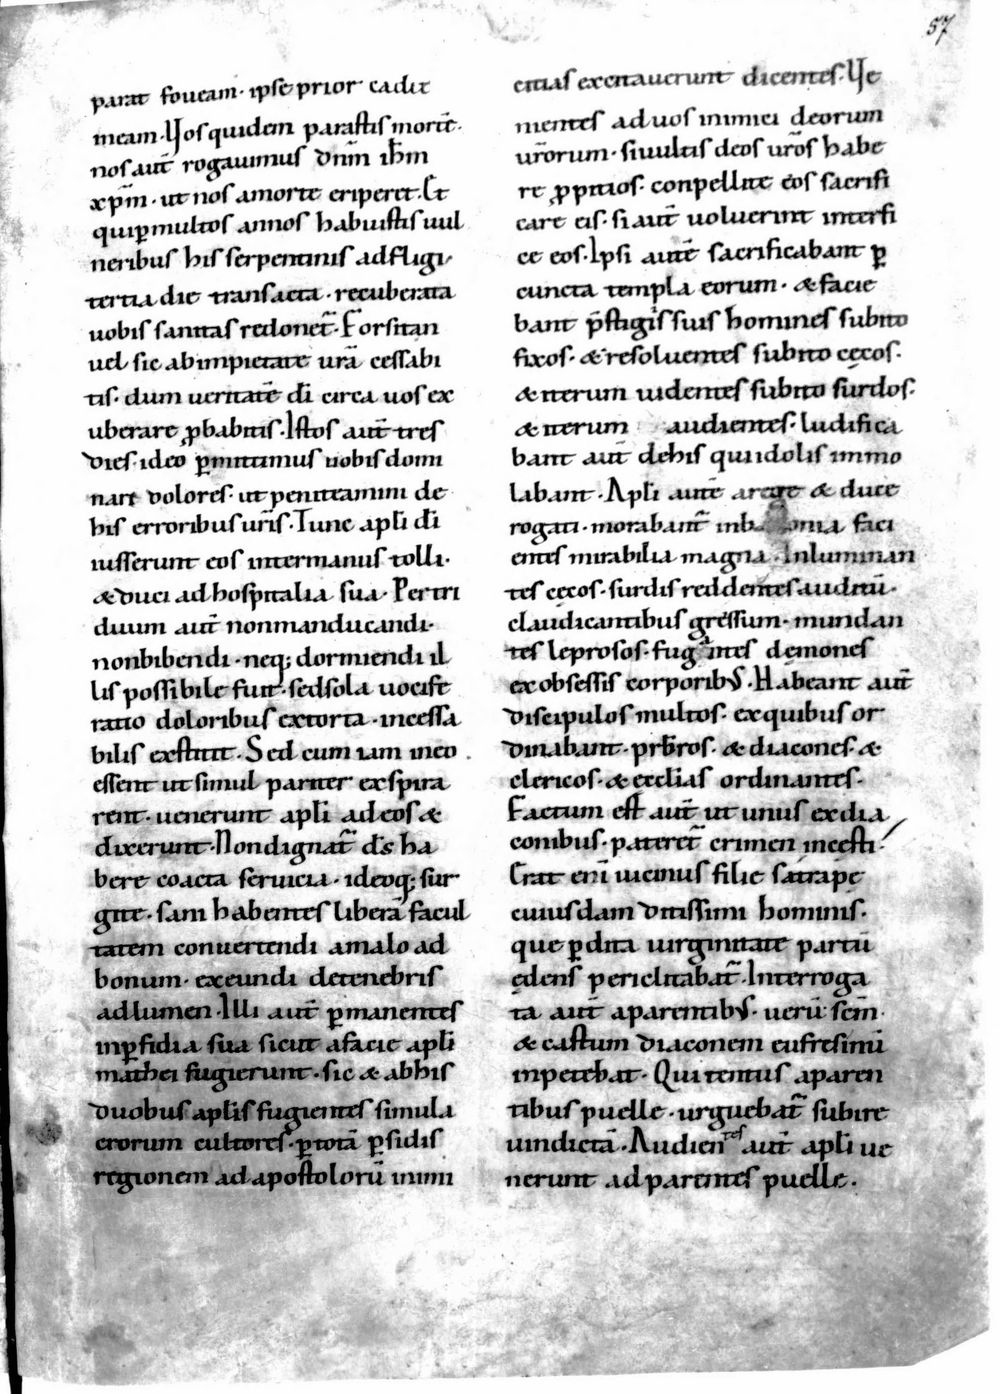 57
parat foueam · ipse prior cadit
meam · Uos quidem parastis morte᷒ ·
nos aut̄ rogauimus dn̄m ih̄m
xp̄m · ut nos a morte eriperet · Et
qui ꝑ multos annos habuistis uul
neribus his serpentinis adfligi
tertia die transacta · recuberata
uobis sanitas redonet᷒ · Forsitan
uel sic ab impietate ur̄a cessabi
tis · dum ueritatē dī circa uos ex
uberare ꝓbabitis · Istos aut̄ tres
dies · ideo ꝑmittimus uobis domi
nari dolores · ut peniteamini de
his erroribus ur̄is · Tunc apl̄i dī
iusserunt eos inter manus tolli ·
& duci ad hospitalia sua · Per tri
duum aut̄ non manducandi ·
non bibendi · neq; dormiendi il
lis possibile fuit · sed sola uocife
ratio doloribus extorta · incessa
bilis exstitit · Sed cum iam in eo
essent ut simul pariter exspira
rent · uenerunt apl̄i ad eos &
dixerunt · Non dignat᷒ ds̄ ha
bere coacta seruicia · ideoq; sur
gite · sani habentes liberā facul
tatem conuertendi a malo ad
bonum · exeundi de tenebris
ad lumen · Illi aut̄ ꝑmanentes
in ꝑfidia sua sicut a facie apl̄i
mathei fugierunt · sic & ab his
duobus apl̄is fugientes simula
crorum cultores · ꝑ totā ꝑsidis
regionem ad apostolorū inimi
citias excitauerunt dicentes · Ue
nientes ad uos inimici deorum
ur̄orum · si uultis deos ur̄os habe
re ꝓpitios · conpellite eos sacrifi
care eis · si aut̄ uoluerint interfi
ce eos · Ipsi autē sacrificabant ꝑ
cuncta templa eorum · & facie
bant p̄stigiis suis homines subito
fixos · & resoluentes subito cęcos ·
& iterum uidentes subito surdos ·
& iterum audientes · ludifica
bant aut̄ de his qui idolis immo
labant · Apl̄i autē a rege & duce
rogati · morabant᷒ in babilonia faci
entes mirabilia magna · Inluminan
tes cęcos · surdis reddentes auditū ·
claudicantibus gressum · mundan
tes leprosos · fugantes dęmones
ex obsessis corporibus · Habeant aut̄
discipulos multos · ex quibus or
dinabant · pr̄bros · & diacones · &
clericos · & eccl̄ias ordinantes ·
Factum est aut̄ ut unus ex dia
conibus · pateret᷒ crimen incesti ·
Erat enī uicinus filię satrapę
cuiusdam ditissimi hominis ·
que ꝑdita uirginitate partū
ędens periclitabat᷒ · Interroga
ta aut̄ a parentibus · uerū sc̄m ·
& castum diaconem eufresinū
inpetebat · Qui tentus a paren
tibus puelle · urguebat᷒ subire
uindictā · Audientes aut̄ apl̄i ue
nerunt ad parentes puelle ·